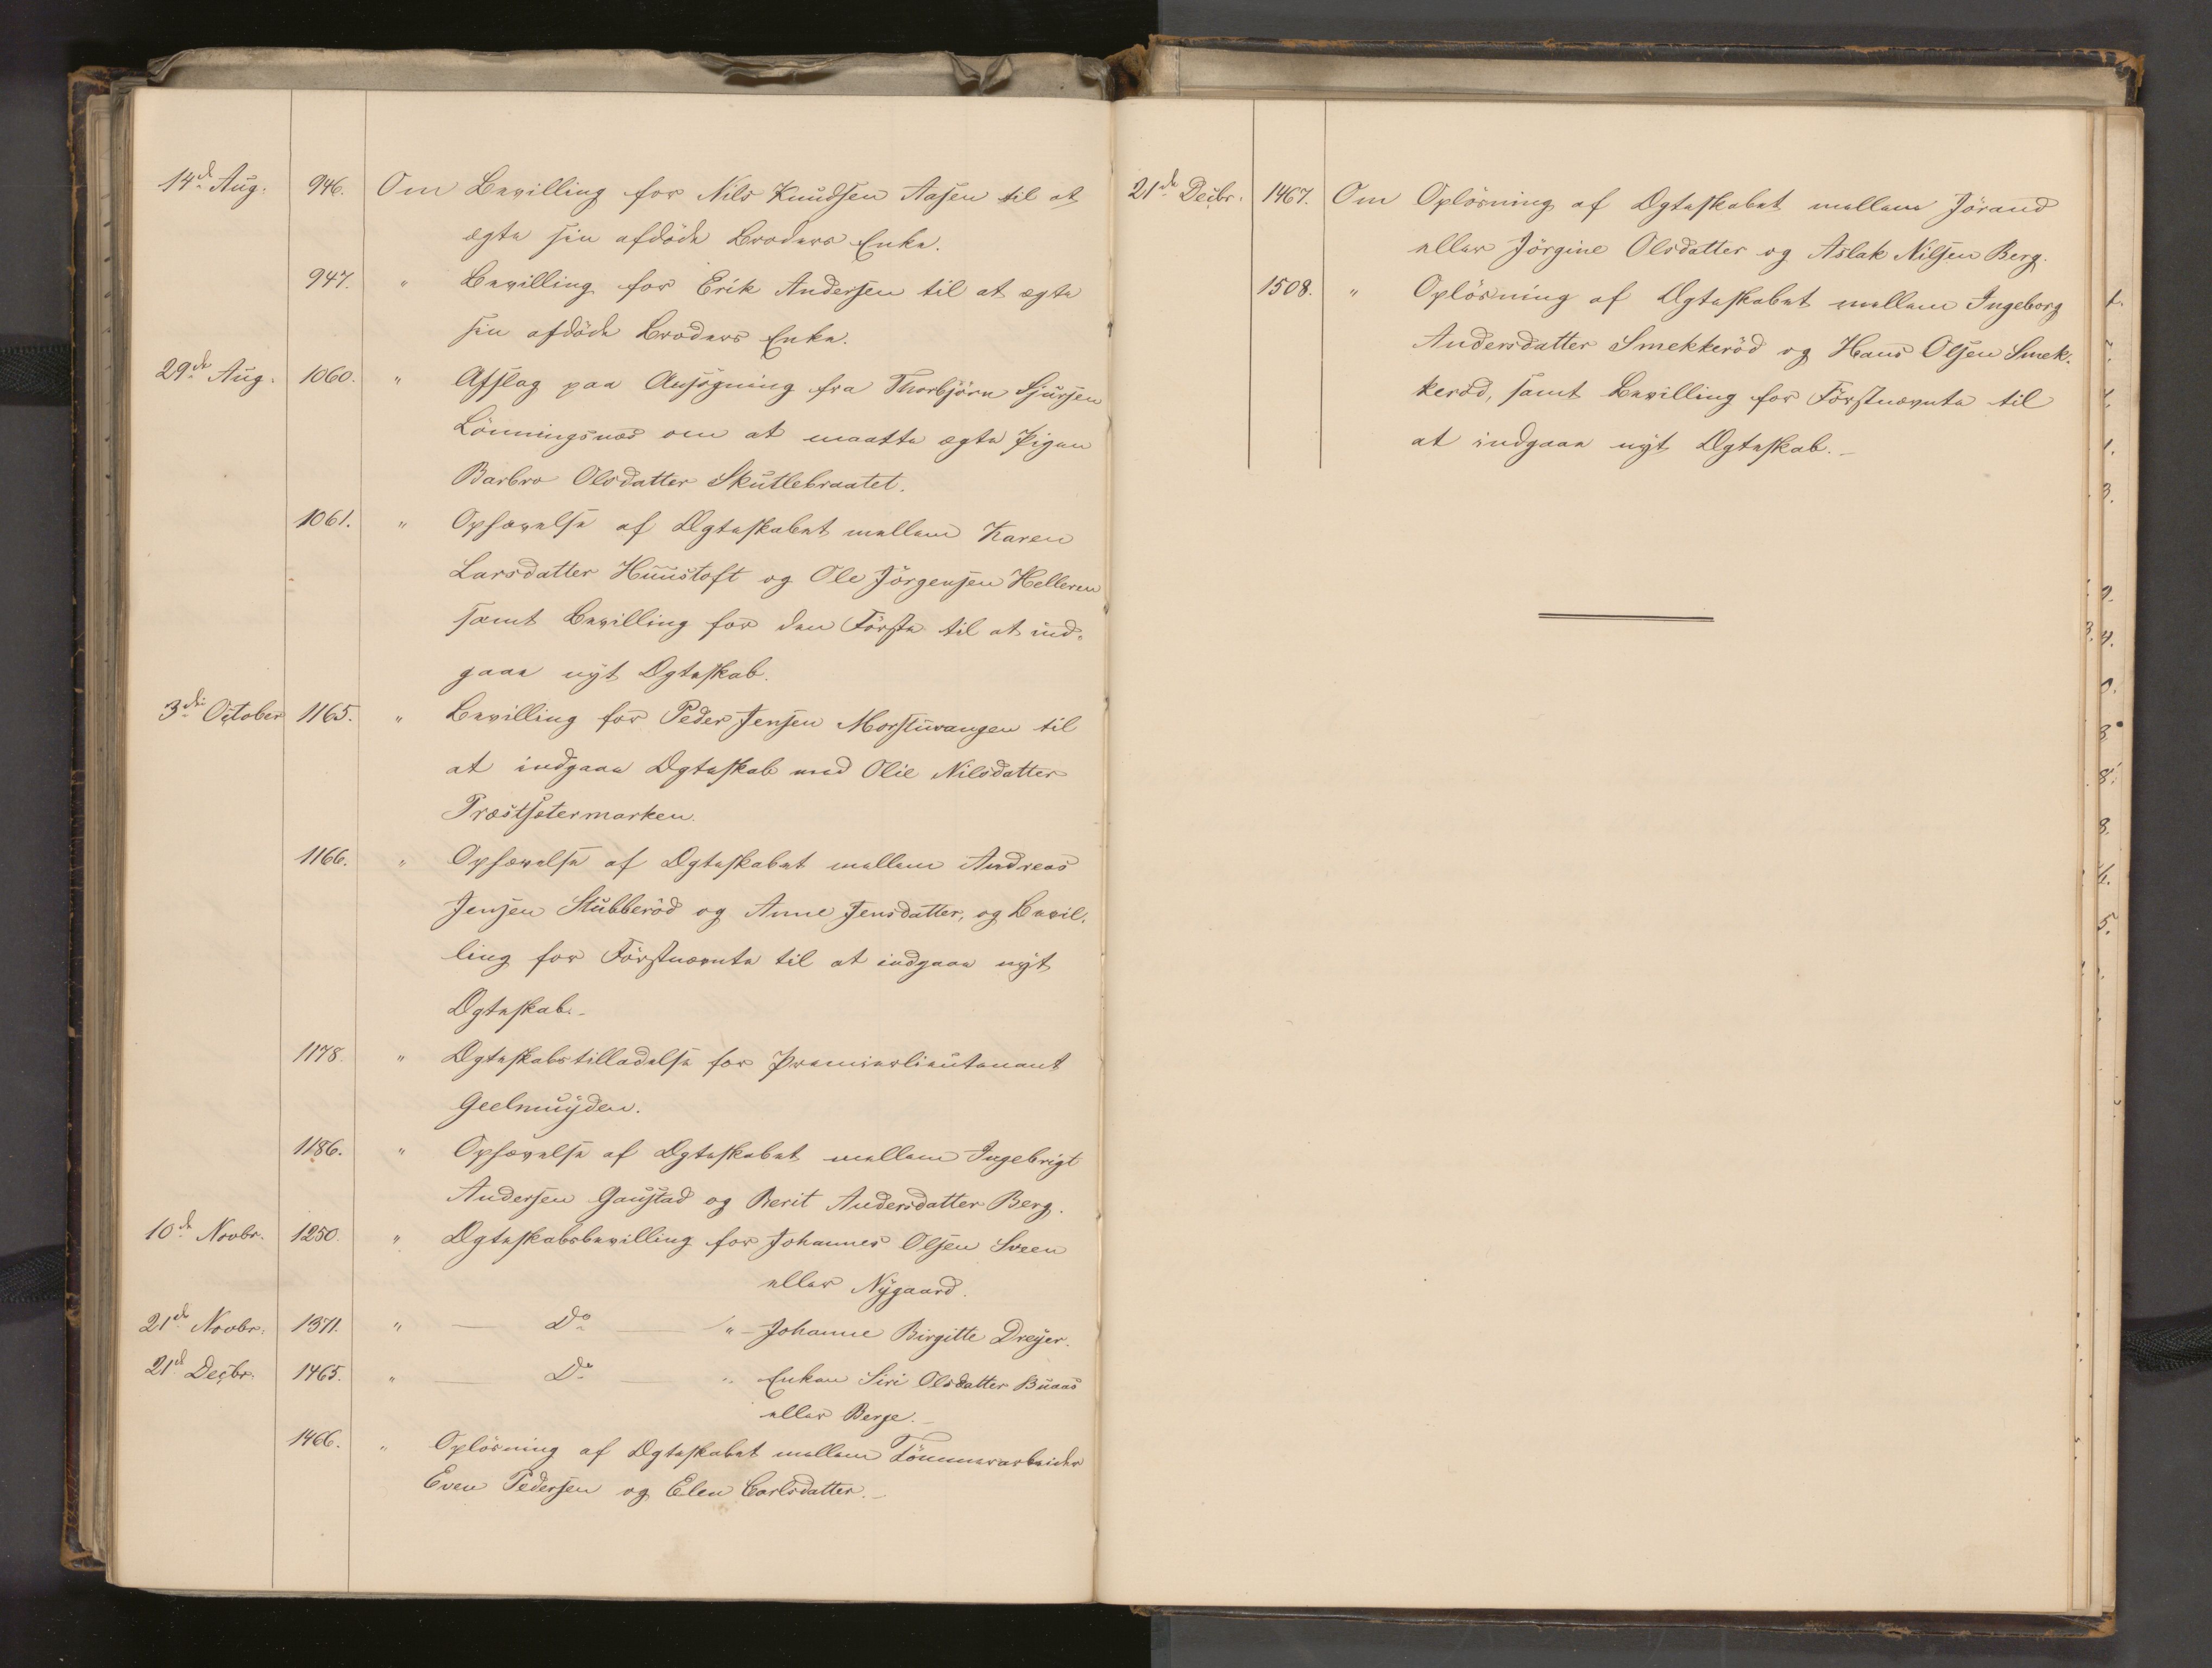 14d Aug. 946. Om Bevilling for Nils Knudsen Aasen til at
ægte sin afdøde Broders Enke.
947. " Bevilling for Erik Andersen til at ægte
sin afdøde Broders Enke.
29de Aug. 1060. " Afslag paa Ansøgning fra Thorbjörn Sjursen
Lönningsnæs om at maatte ægte Pigen
Barbro Olsdatter Skutlebraatet.
1061. " Ophævelse af Ægteskabet mellem Karen
Larsdatter Huustoft og Ole Jörgensen Helleren
samt Bevilling for den Første til at ind-
gaae nyt Ægteskab.
3die October 1165. " Bevilling for Peder Jensen Morstuvangen til
at indgaae Ægteskab med Olie Nilsdatter
Præstsætermarken.
1166. " Ophævelse af Ægteskabet mellem Andreas
Jensen Stubberöd og Anne Jensdatter, og Bevil-
ling for Førstnævnte til at indgaae nyt
Ægteskab.-
1178. " Ægteskabstilladelse for Premierlieutenant
Geelmuyden.
1186. " Ophævelse af Ægteskabet mellem Ingebrigt
Andersen Gaustad og Berit Andersdatter Berg.
10de Novbr. 1250. " Ægteskabsbevilling for Johannes Olsen Sveen
eller Nygaard.
21de Novbr. 1371. " — Do — " Johanne Birgitte Dreyer.
21d Decbr. 1465. " — Do — " Enken Siri Olsdatter Buaas
eller Berge.-
1466. " Opløsning af Ægteskabet mellem Tømmerarbeider
Even Pedersen og Elen Carlsdatter.-
21de Decbr. 1467. Om Opløsning af Ægteskabet mellem Jörand
eller Jörgine Olsdatter og Aslak Nilsen Berg.
1508. " Opløsning af Ægteskabet mellem Ingeborg
Andersdatter Smekkeröd og Hans Olsen Smek-
keröd, samt Bevilling for Førstnævnte til
at indgaae nyt Ægteskab.-